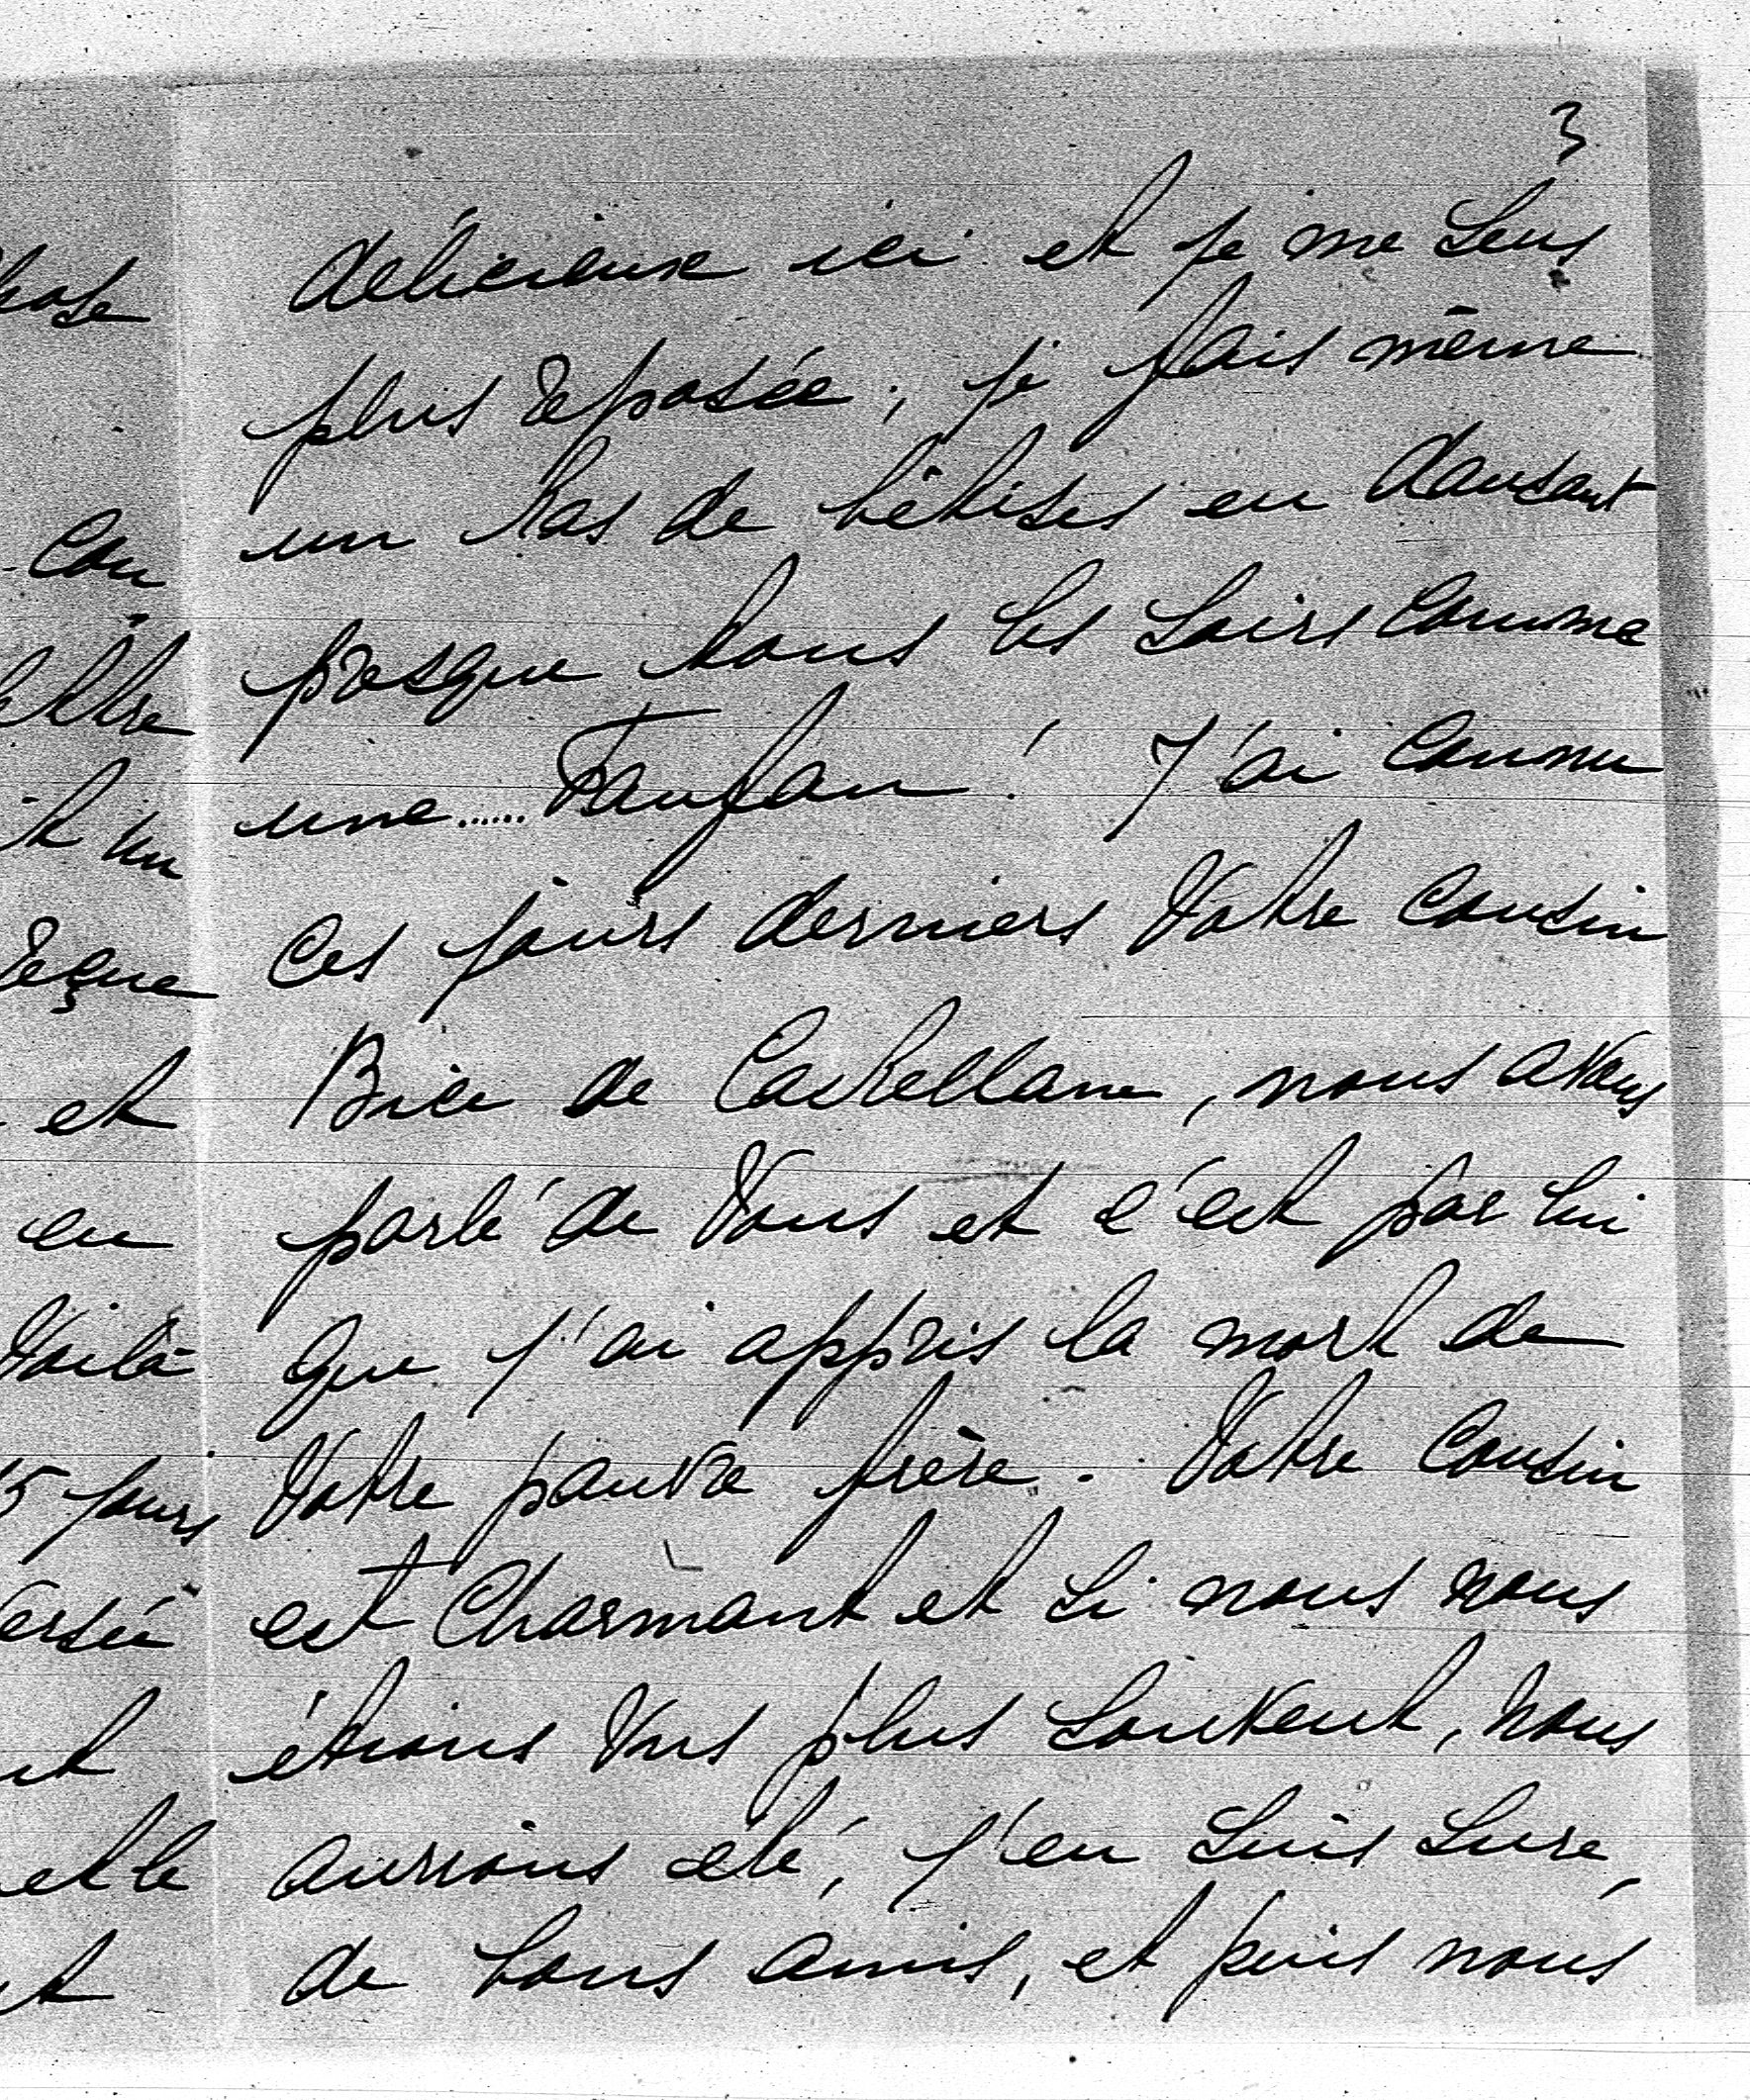 3
délicieuse ici et je me sens
plus reposée, je fais même
un tas de bêtises en dansant
presque tous les soirs comme
une...... Fanfan! J'ai connu
ces jours derniers Votre Cousin
de Castellane, nous avons
parlé de Vous et c'est par lui
que j'ai appris la mort de
Votre pauvre frère. Votre Cousin
est Charmant et si nous nous
étions Vus plus souvent, nous
aurions été, j'en suis sure,
de bons amis, et puis nous
hose
Con
lettre
un
reçue
et
en
Voilà
15 jours
et le